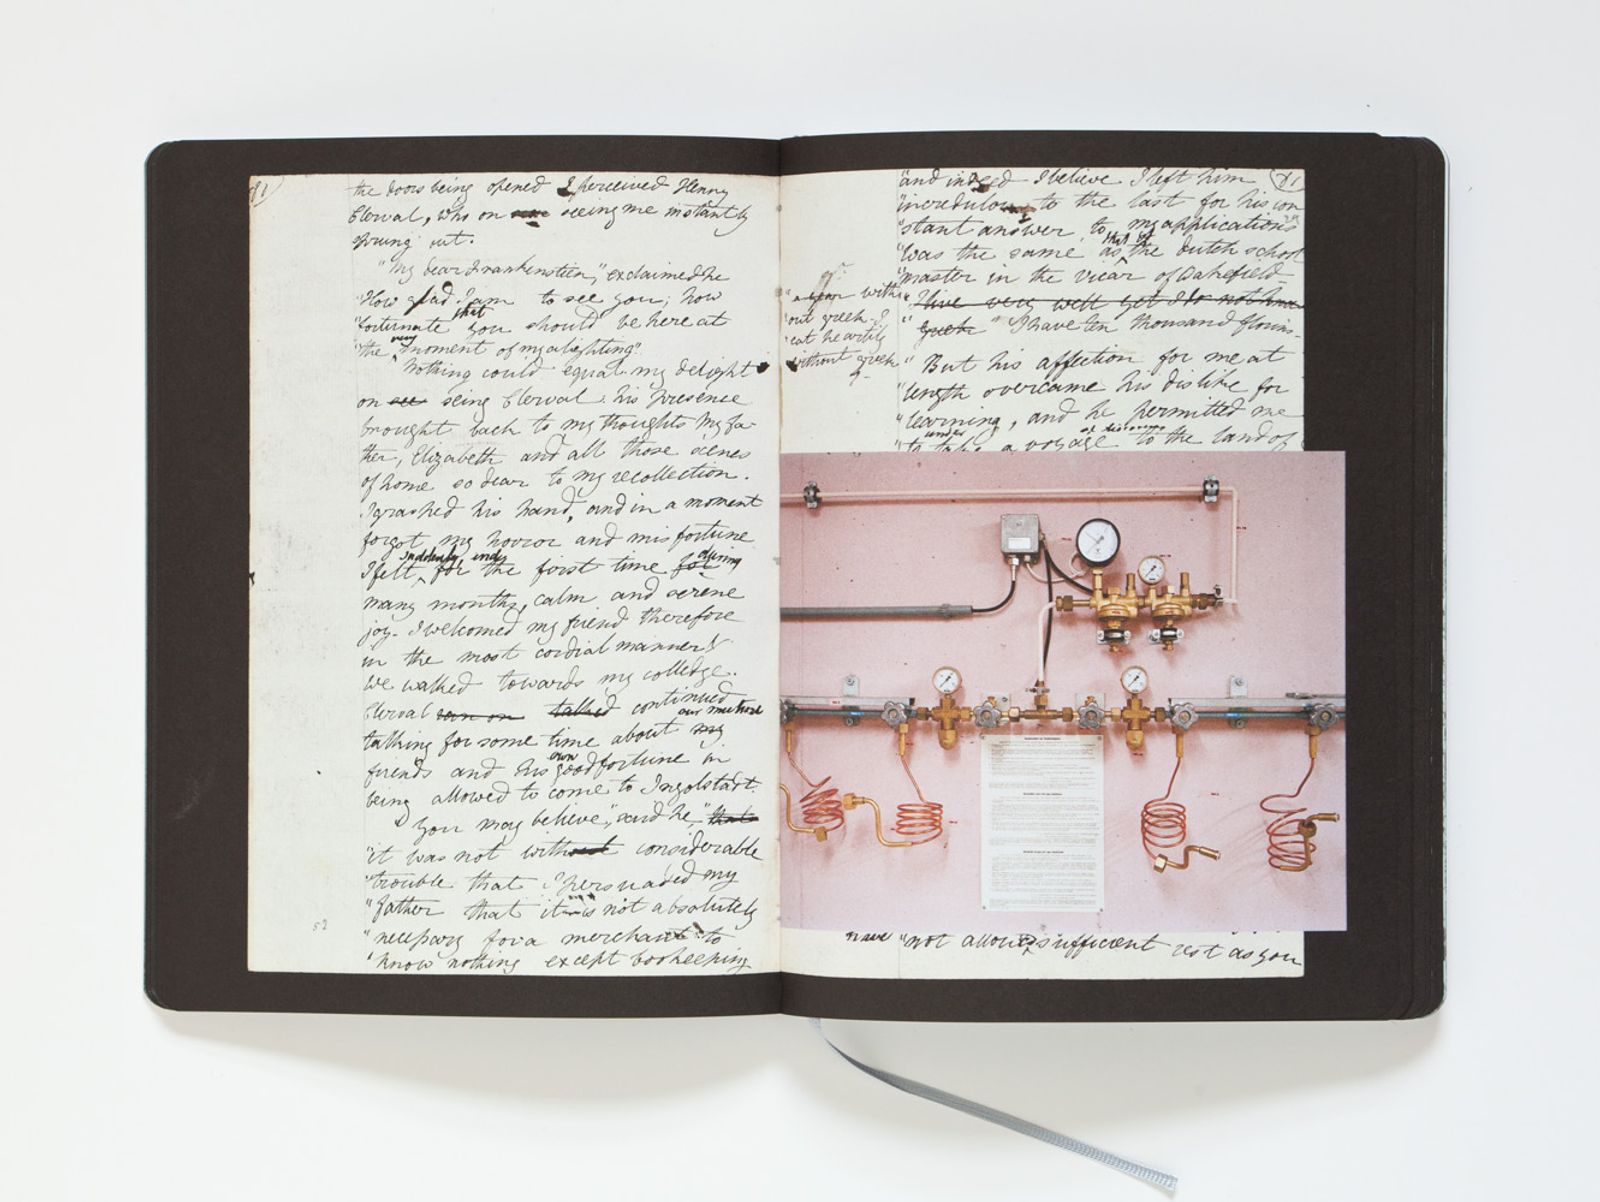 81
the doors being opened I perceived Henry
Clerval, who on seeing me instantly
sprung out.
"My dear Frankenstein," exclaimed he
"How glad I am to see you; how
"fortunate that you should be here at
"the very moment of my alighting".
Nothing could equal my delight
on see seing Clerval. his presence
brought back to my thoughts My fa-
ther, Elizabeth and all those scenes
of home so dear to my recollection.
I grasped his hand, and in a moment
forgot my horror and misfortune
suddenly and during
I felt, for the first time for
many months, calm and serene
joy. I welcomed my friend therefore
in the most cordial manner &
we walked towards my colledge.
Clerval ran on talked continued
talking for some time about my our mutual
friends and his own good fortune in
being allowed to come to Ingolstadt.
You may believe," said he, "that
"it was not without considerable
"trouble that I persuaded my
"father that it was is not absolutely
"necessary for a merchant to
"know nothing except bookeeping
"and indeed I believe I left him
81
incredulous to the last for his con
"stant answer to my applications
"was the same as that of the dutch school
"master in the vicar of Wakefield
"I live very well yet I do not know
"Greek "I have ten thousand florins
"a year with
"out greek. I
"eat heartily
"without greek
" But his affection for me at
"length overcame his dislike for
"learning, and he permitted me
under
"to take a voyage of discovery to the land of
have "not allowed sufficient rest as you